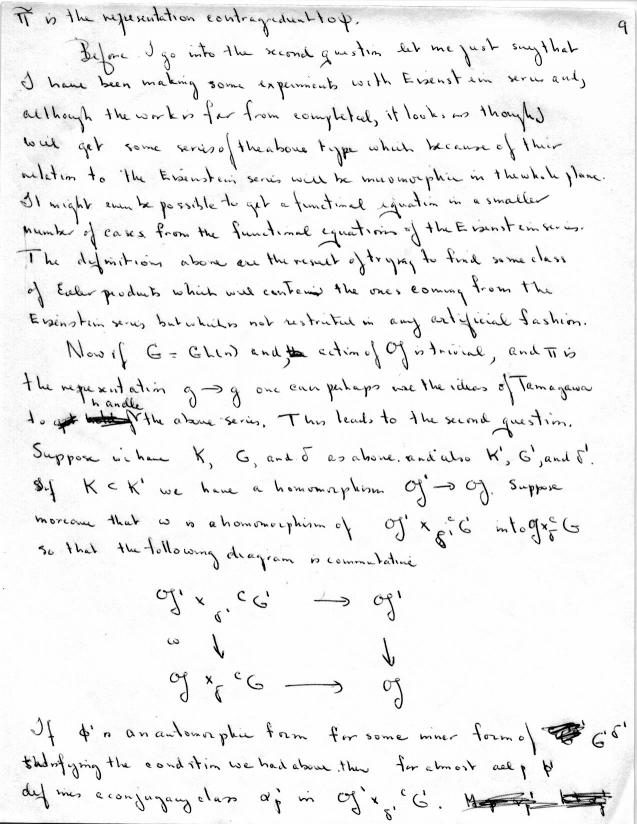 π̃ is the representation contragredient to φ.
9
Before I go into the second question let me just say that
I have been making some experiments with Eisenstein series and,
although the work is far from completed, it looks as though I
will get some series of the above type which because of their
relation to the Eisenstein series will be meromorphic in the whole plane.
It might even be possible to get a functional equation in a smaller
number of cases from the functional equations of the Eisenstein series.
The definitions above are the result of trying to find some class
of Euler products which will contain the ones coming from the
Eisenstein series but which is not restricted in any artificial fashion.
Now if G = GL(n) and, action of 𝔤 is trivial, and π is
the representation g → g one can perhaps use the ideas of Tamagawa
to handle the above series. This leads to the second question.
Suppose we have K, G, and δ as above. and also K', G', and δ'.
If K ⊂ K' we have a homomorphism 𝔤' → 𝔤. Suppose
moreover that ω is a homomorphism of 𝔤' ×_δ' ᶜG' into 𝔤 ×_δ ᶜG
so that the following diagram is commutative
𝔤' ×_δ' ᶜG' → 𝔤'
ω ↓ ↓
𝔤 ×_δ ᶜG → 𝔤
If φ' is an automorphic form for some inner form of G'^δ'
satisfying the condition we had above then for almost all p φ'
defines a conjugacy class α'_p in 𝔤' ×_δ' ᶜG'.